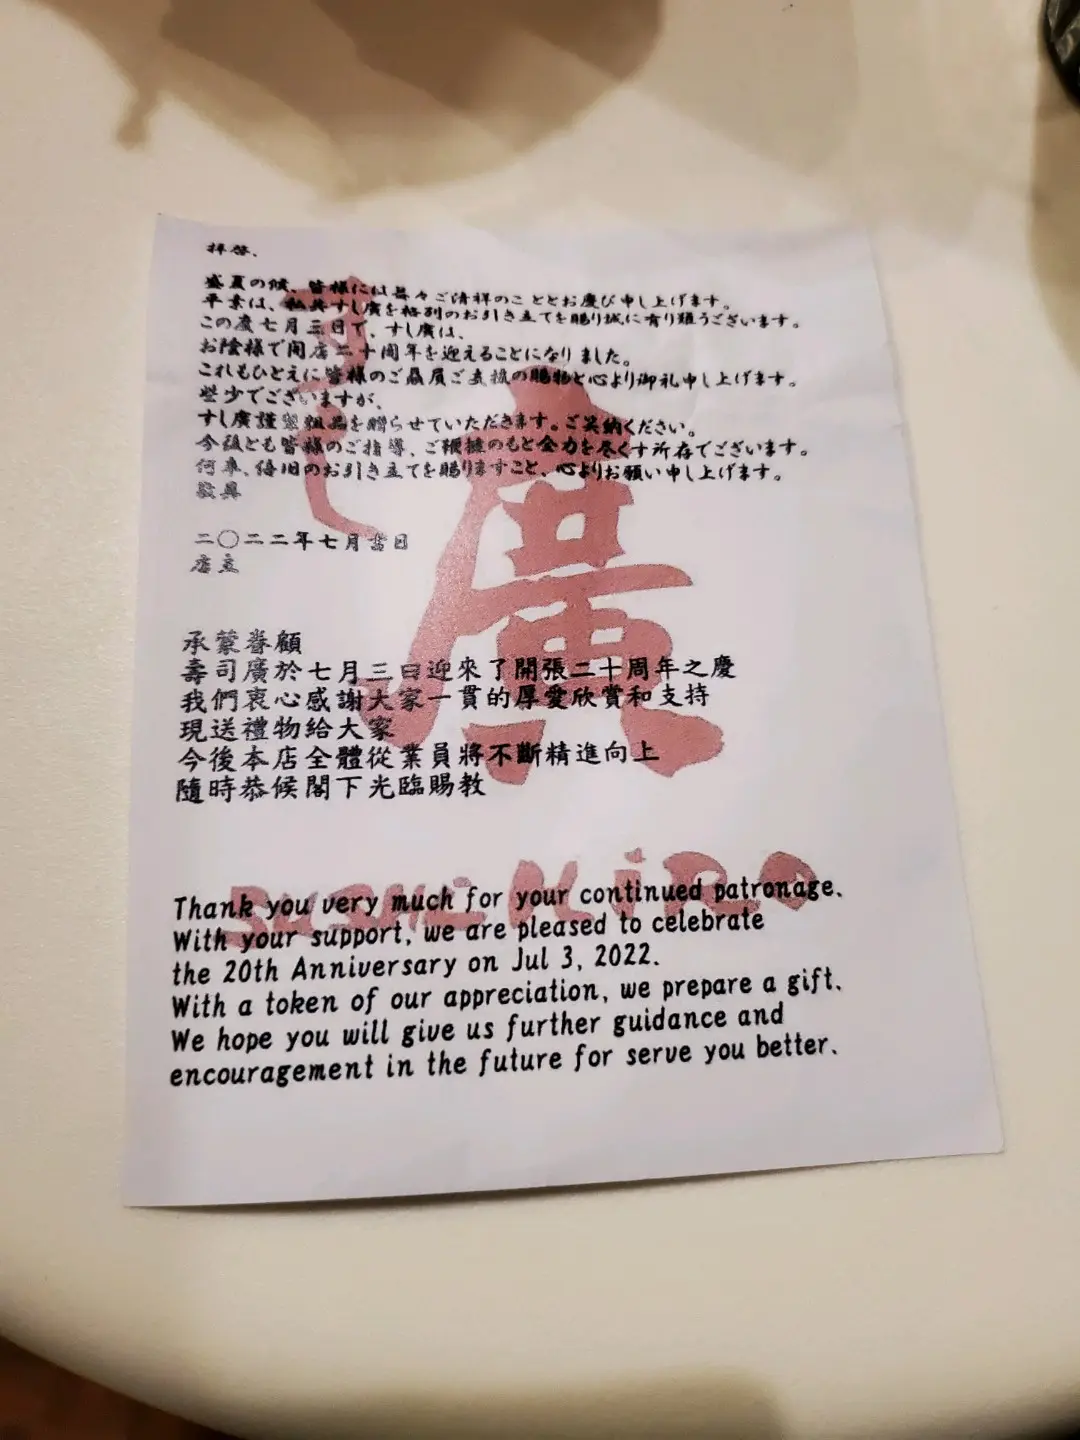 拝啓、
盛夏の候、皆様には益々ご清祥のこととお慶び申し上げます。
平素は、私共すし廣を格別のお引き立てを賜り誠に有り難うございます。
この度七月三日で、すし廣は、
お陰様で開店二十周年を迎えることになりました。
これもひとえに皆様のご贔屓ご支援の賜物と心より御礼申し上げます。
些少でございますが、
すし廣謹製粗品を贈らせていただきます。ご笑納ください。
今後とも皆様のご指導、ご鞭撻のもと全力を尽くす所存でございます。
何卒、倍旧のお引き立てを賜りますこと、心よりお願い申し上げます。
敬具
二〇二二年七月吉日
店主
承蒙眷顧
壽司廣於七月三日迎來了開張二十周年之慶
我們衷心感謝大家一貫的厚愛欣賞和支持
現送禮物給大家
今後本店全體從業員將不斷精進向上
隨時恭候閣下光臨賜教
すし
廣
SUSHI HIRO
Thank you very much for your continued patronage.
With your support, we are pleased to celebrate
the 20th Anniversary on Jul 3, 2022.
With a token of our appreciation, we prepare a gift.
We hope you will give us further guidance and
encouragement in the future for serve you better.